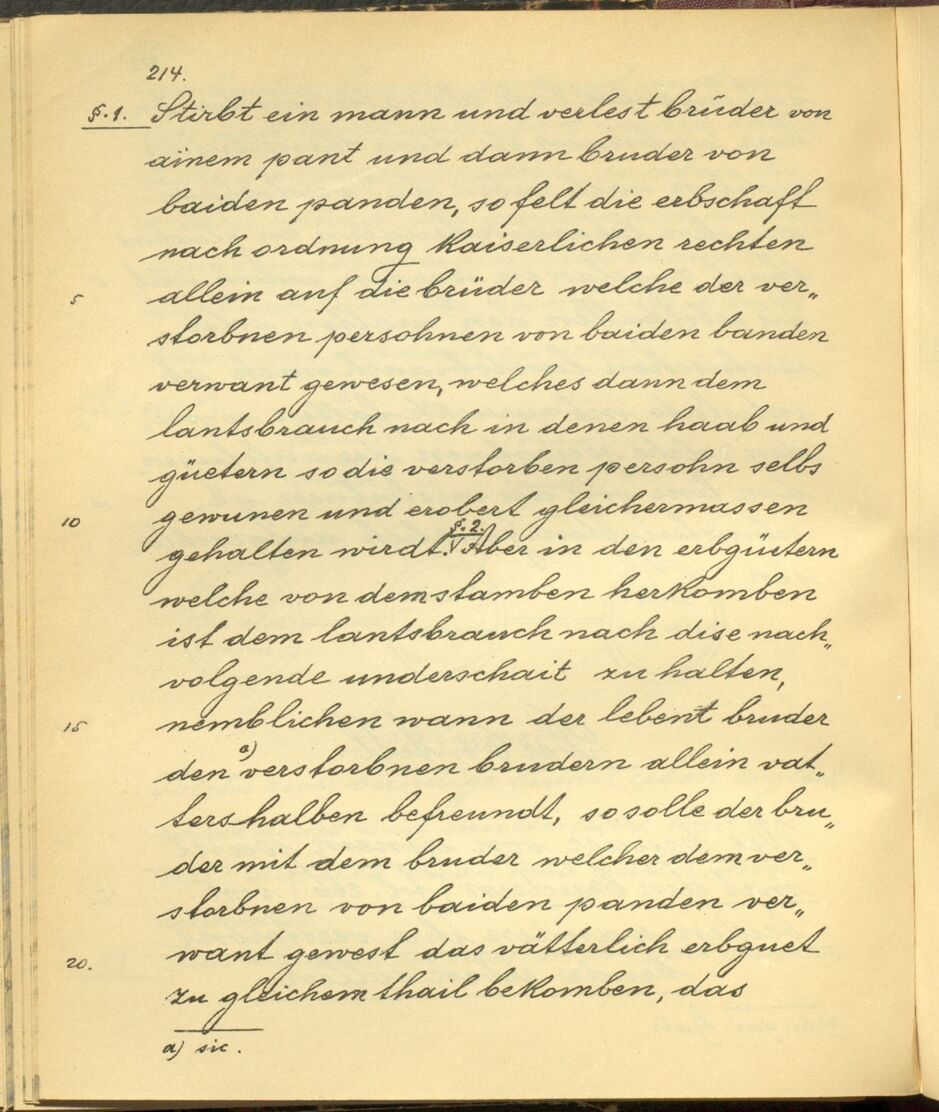 214.
§.1. Stirbt ein mann und verlest brüder von
ainem pant und dann bruder von
baiden panden, so felt die erbschaft
nach ordnung Kaiserlichen rechten
5 allein auf die brüder welche der ver„
storbnen persohnen von baiden banden
verwant gewesen, welches dann dem
lantsbrauch nach in denen haab und
güetern so die verstorben persohn selbs
10 gewunen und erobert gleichermassen
gehalten wirdt. §.2. Aber in den erbgüetern
welche von dem stamben herkomben
ist dem lantsbrauch nach dise nach„
volgende underschait zu halten,
15 nemblichen wann der lebent bruder
den a) verstorbnen brudern allein vat„
tershalben befreundt, so solle der bru„
der mit dem bruder welcher dem ver„
storbnen von baiden panden ver„
20. want gewest das vätterlich erbguet
zu gleichem thail bekomben, das
a) sic.